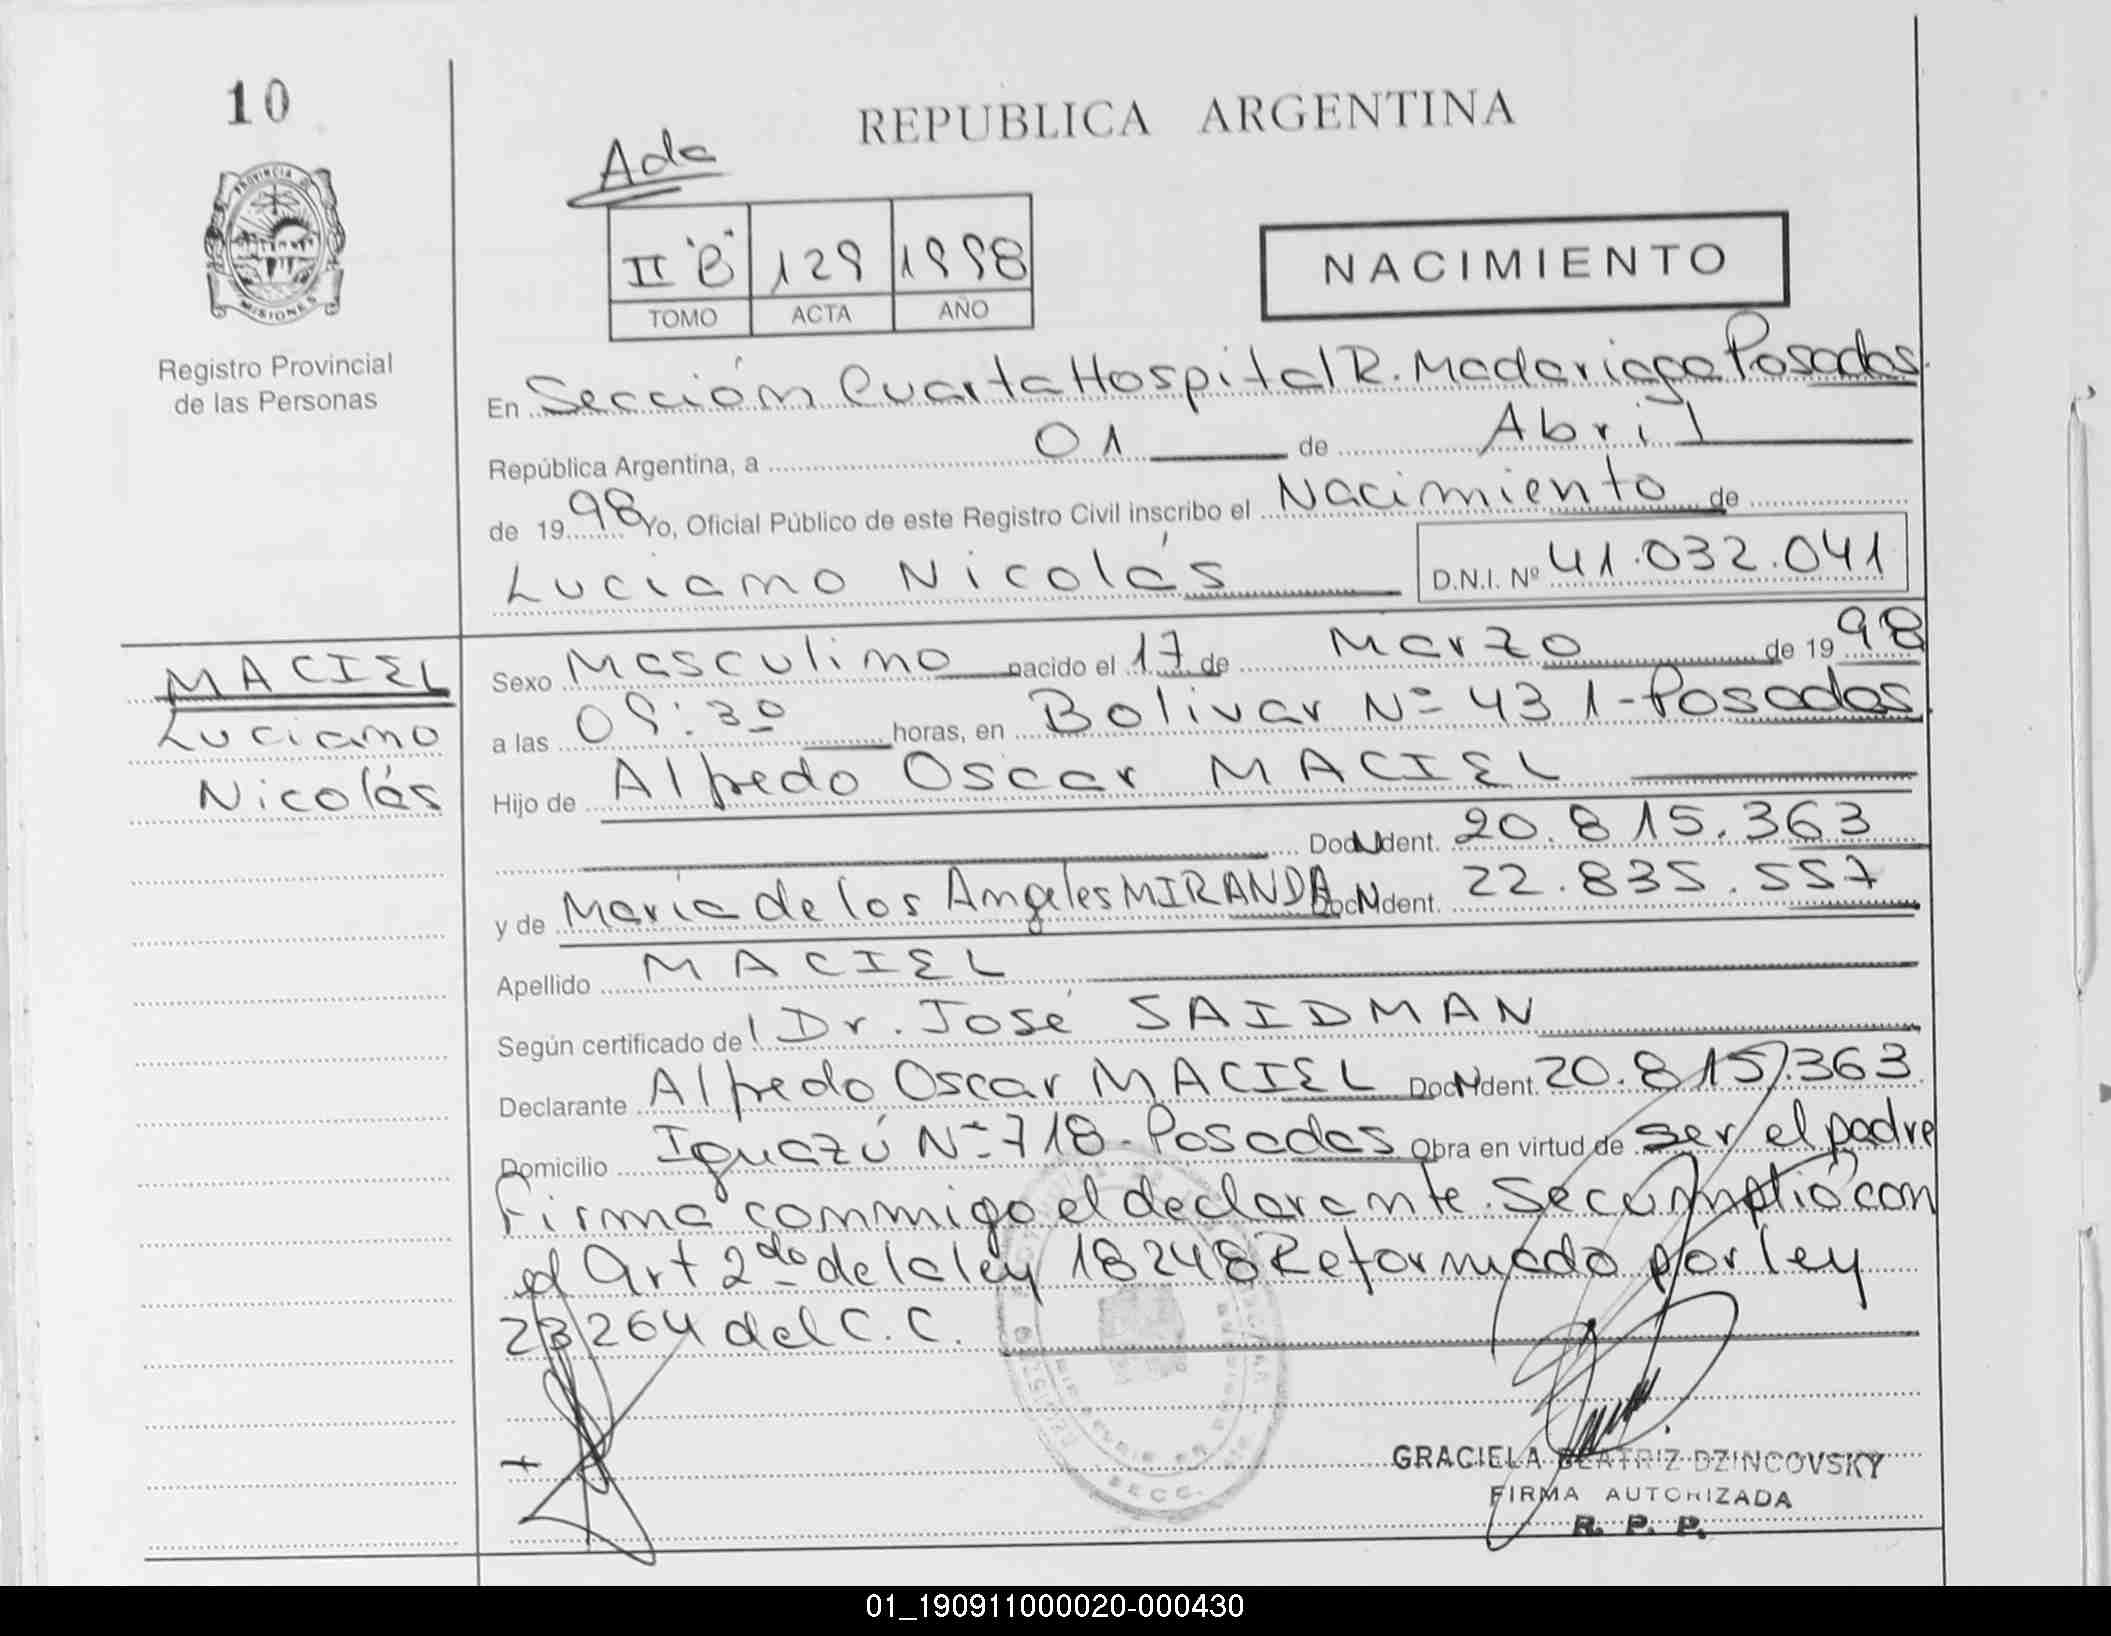 10
REPUBLICA ARGENTINA
PROVINCIA DE
MISIONES
Registro Provincial
de las Personas
Ada
II "B" 129 1998
TOMO ACTA AÑO
NACIMIENTO
En Sección Cuarta Hospital R. Madariaga Posadas.
República Argentina, a 01 de Abril
de 1998 Yo, Oficial Público de este Registro Civil inscribo el Nacimiento de
Luciano Nicolás D.N.I. Nº 41.032.041
MACIEL
Luciano
Nicolás
Sexo Masculino nacido el 17 de Marzo de 1998
a las 09:30 horas, en Bolivar Nº 431-Posadas.
Hijo de Alfredo Oscar MACIEL
Doc N dent. 20.815.363
y de María de los Angeles MIRANDA Doc N dent. 22.835.557
Apellido MACIEL
Según certificado del Dr. José SAIDMAN
Declarante Alfredo Oscar MACIEL Doc N dent. 20.815.363
Domicilio Iguazú Nº 718-Posadas Obra en virtud de ser el padre
Firma conmigo el declarante. Se cumplió con
el Art 2do de la ley 18248 Reformado por ley
23264 del C.C.
SECC.
GRACIELA BEATRIZ DZINCOVSKY
FIRMA AUTORIZADA
R. P. P.
01_190911000020-000430